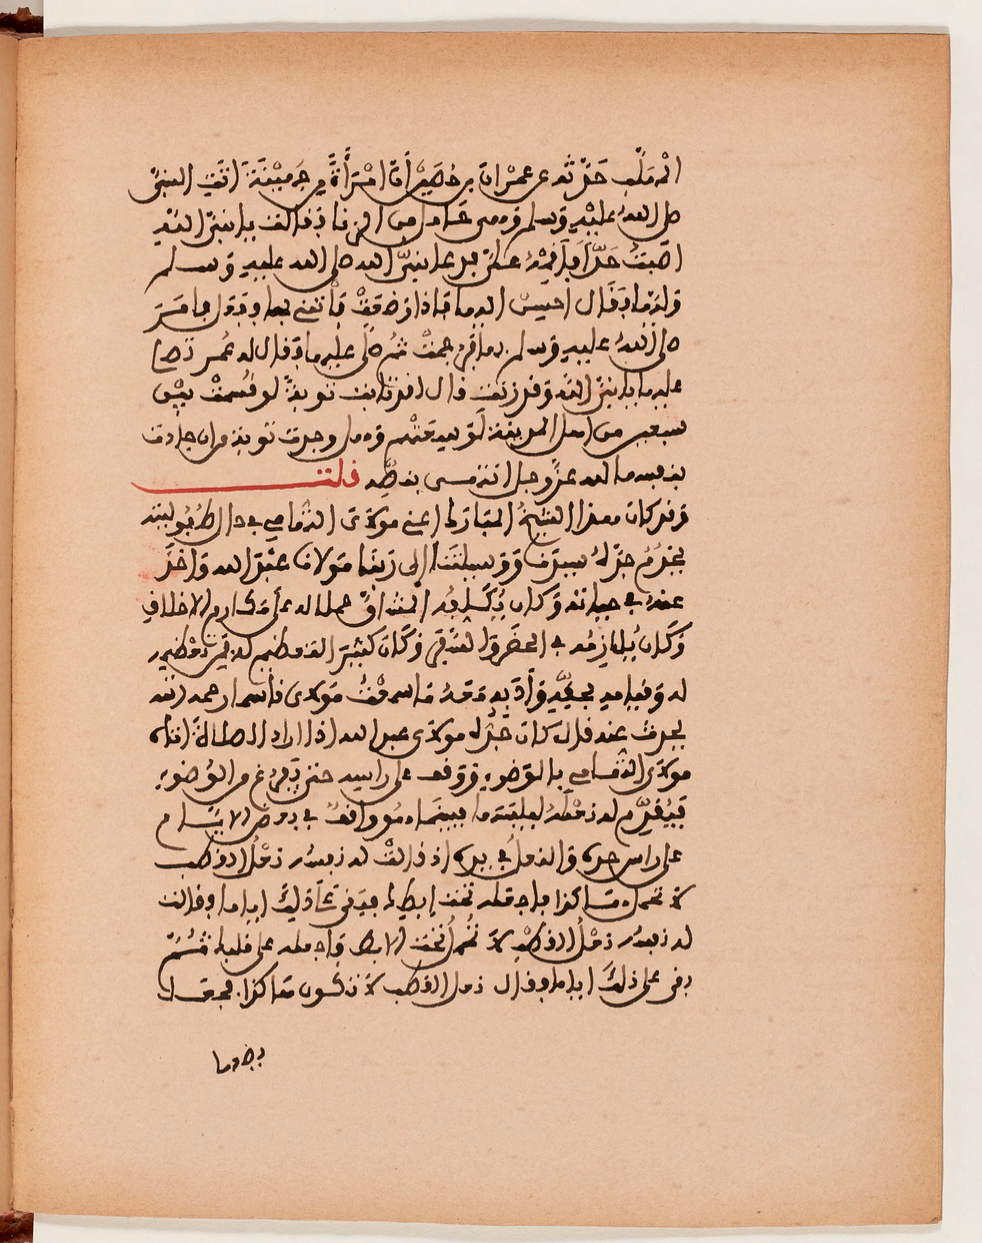 المهلب حدّثه عن عمران بن حُصَيْن أنّ امْرَأَةً من جهَيْنَةَ اتت النبيّ
صلى اللهُ عليْهِ وَسلم وهي حامل من الزنا فقالت يا نبيّ اللهِ
اصَبْتُ حَدّاً فأقِمْهُ عليّ فدعا نبيّ الله صلى الله عليه وسلم
وليّها فقال احسِنْ اليها فاذا وضعتْ فأتني بها وفعل فأمر
صلى اللهُ عليه وسلم بها فرجمتْ ثم صلّى عليها فقال له عمر تصلي
عليها يا نبيّ الله وقد زنت قال لقد تابت توبةً لو قُسمتْ بيْن
سبعين من اهل المدينة لَوَسِعَتْهم وهل وجدت توبة من ان جادت
بنفسها لله عزّ وجل انتهى بنصّه قلت
وقد كان هذا الشيخُ المبارك اعني مولاي التهامي في حال الطُّبُوليته
يخدُمُ جدّ لهُ سيدنا ووسيلتنا الى ربنا مولانا عبْدَ الله واخذَ
عنهُ في حياته وكان يُكلّفِه المشاقّ حملا له على مكارم الاخلاقِ
وَكان يُلازمُه في الحضَر والسَّفَر وَكَان كثِيرَ التعظيم له فمن تعْظيمه
له وقيامه بحقّهِ وأدَبِه معَهُ ما سمعْتُ مولاي قاسما رحمه الله
يحدث عنه قال كان جدُّه مولاي عبد الله اذا اراد الصلاةَ اتاه
مولاي التهامي بالوَضوء ووقف على راسه حتى يَفرُغ من الوُضوء
فيُقدّم له نعْلهُ ليلبسها فبينما هو واقفٌ في بعض الايّام
على راس جده والنعلُ في يده اذ قالتْ له نفسه نعْلُ القطب
لا تحمل هاكذا فاجعله تحت إبطِك فبقي على ذلِك اياما وقالت
له نفسه نعْلُ القطْب لا تُحمل تحت الابط واجعله على قلبك ثمّ
بقى على ذلكَ اياما وقال نعل القطب لا تكون هاكذا فجعل
بعضها